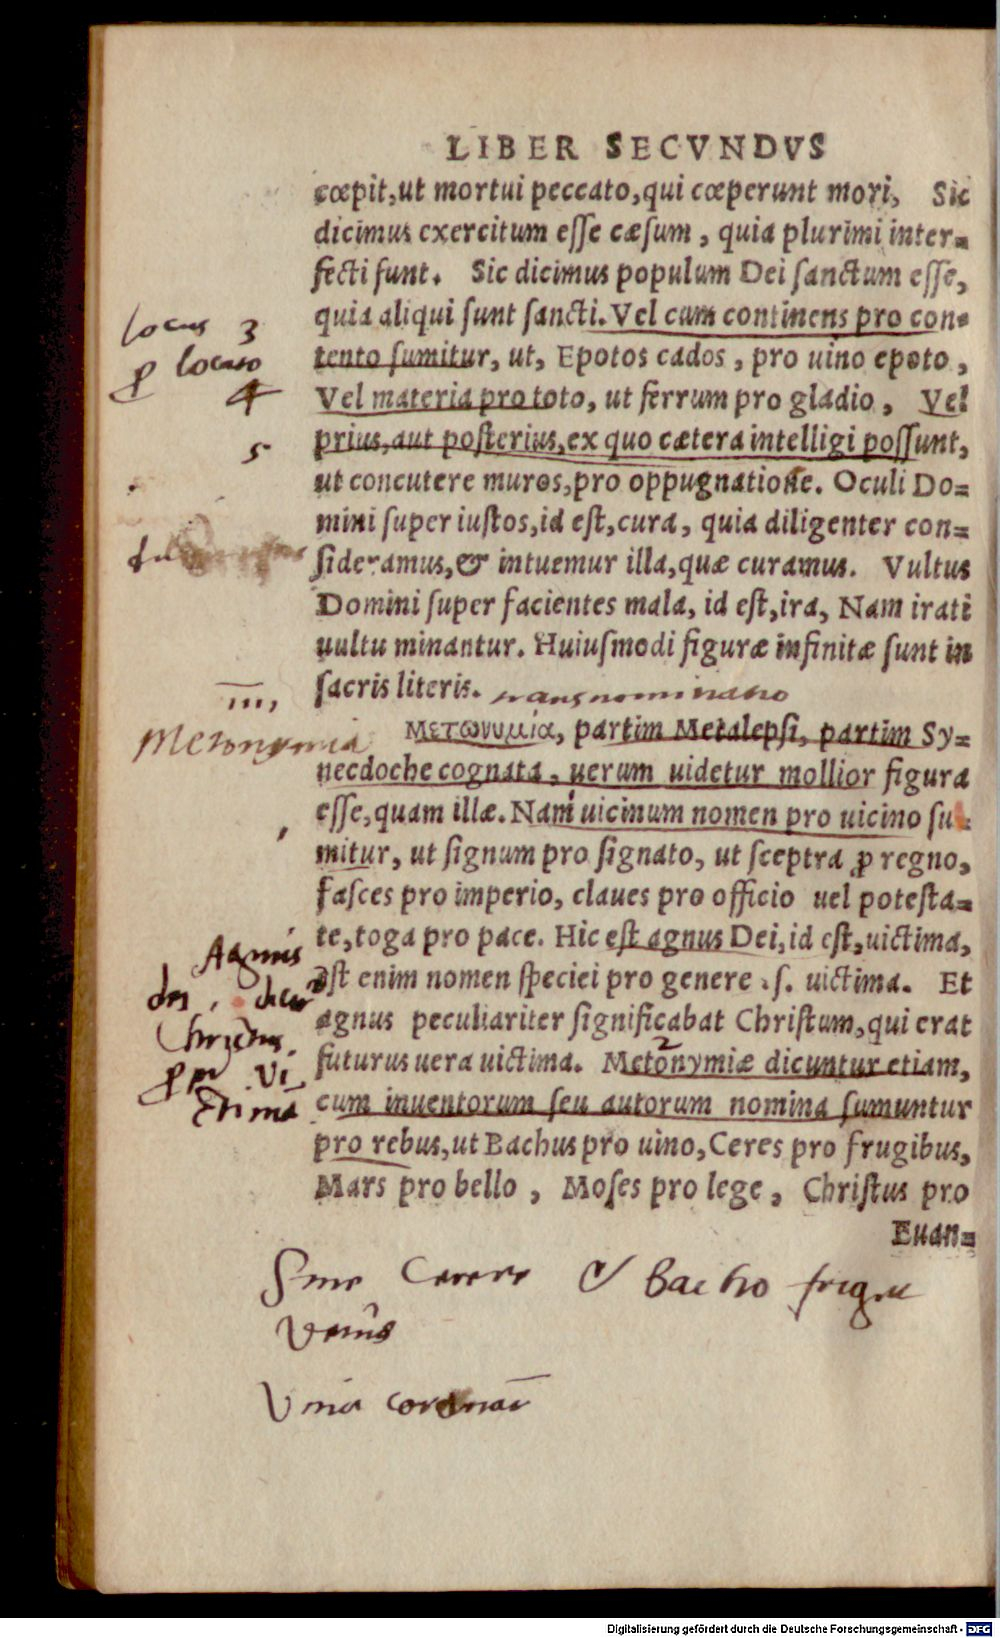 LIBER SECVNDVS
cœpit, ut mortui peccato, qui cœperunt mori, Sic
dicimus exercitum esse cæsum, quia plurimi inter=
fecti sunt. Sic dicimus populum Dei sanctum esse,
quia aliqui sunt sancti. Vel cum continens pro con=
locus 3
tento sumitur, ut, Epotos cados, pro uino epoto,
ꝑ locato
Vel materia pro toto, ut ferrum pro gladio, Vel
4
prius, aut posterius, ex quo cætera intelligi possunt,
5
ut concutere muros, pro oppugnatione. Oculi Do=
mini super iustos, id est, cura, quia diligenter con=
sideramus, & intuemur illa, quæ curamus. Vultus
Domini super facientes mala, id est, ira, Nam irati
uultu minantur. Huiusmodi figuræ infinitæ sunt in
sacris literis. transnominatio
IIII,
Metonymia
Μετωνυμία, partim Metalepsi, partim Sy=
necdoche cognata, uerum uidetur mollior figura
esse, quam illæ. Nam uicinum nomen pro uicino su=
mitur, ut signum pro signato, ut sceptra ꝓ regno,
fasces pro imperio, claues pro officio uel potesta=
te, toga pro pace. Hic est agnus Dei, id est, uictima,
Agnus
est enim nomen speciei pro genere .s. uictima. Et
dei
agnus peculiariter significabat Christum, qui erat
Christus
futurus uera uictima. Metonymiæ dicuntur etiam,
2
Vi
cum inuentorum seu autorum nomina sumuntur
ctima
pro rebus, ut Bachus pro uino, Ceres pro frugibus,
Mars pro bello, Moses pro lege, Christus pro
Euan=
Sine Cerere & bacho friget
Venus
Vina coronāt
Digitalisierung gefördert durch die Deutsche Forschungsgemeinschaft - DFG